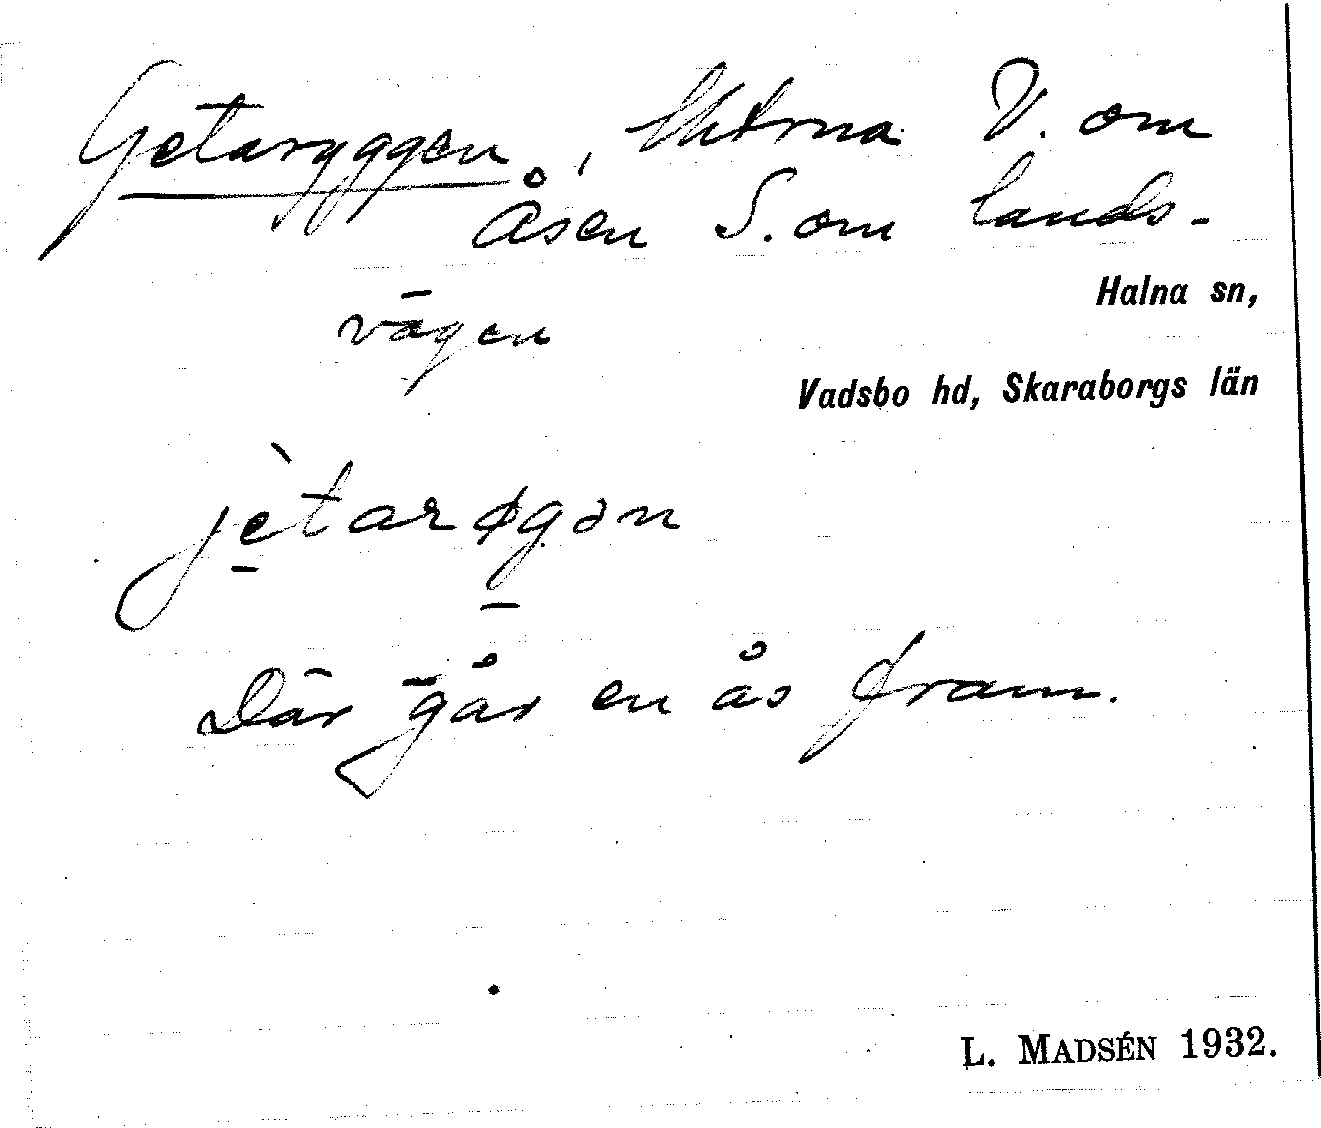 Getaryggen, Utkrna V. om
Åsen S. om lands-
vägen
Halna sn,
Vadsbo hd, Skaraborgs län
jètarøgən
Där går en ås fram.
L. MADSÉN 1932.